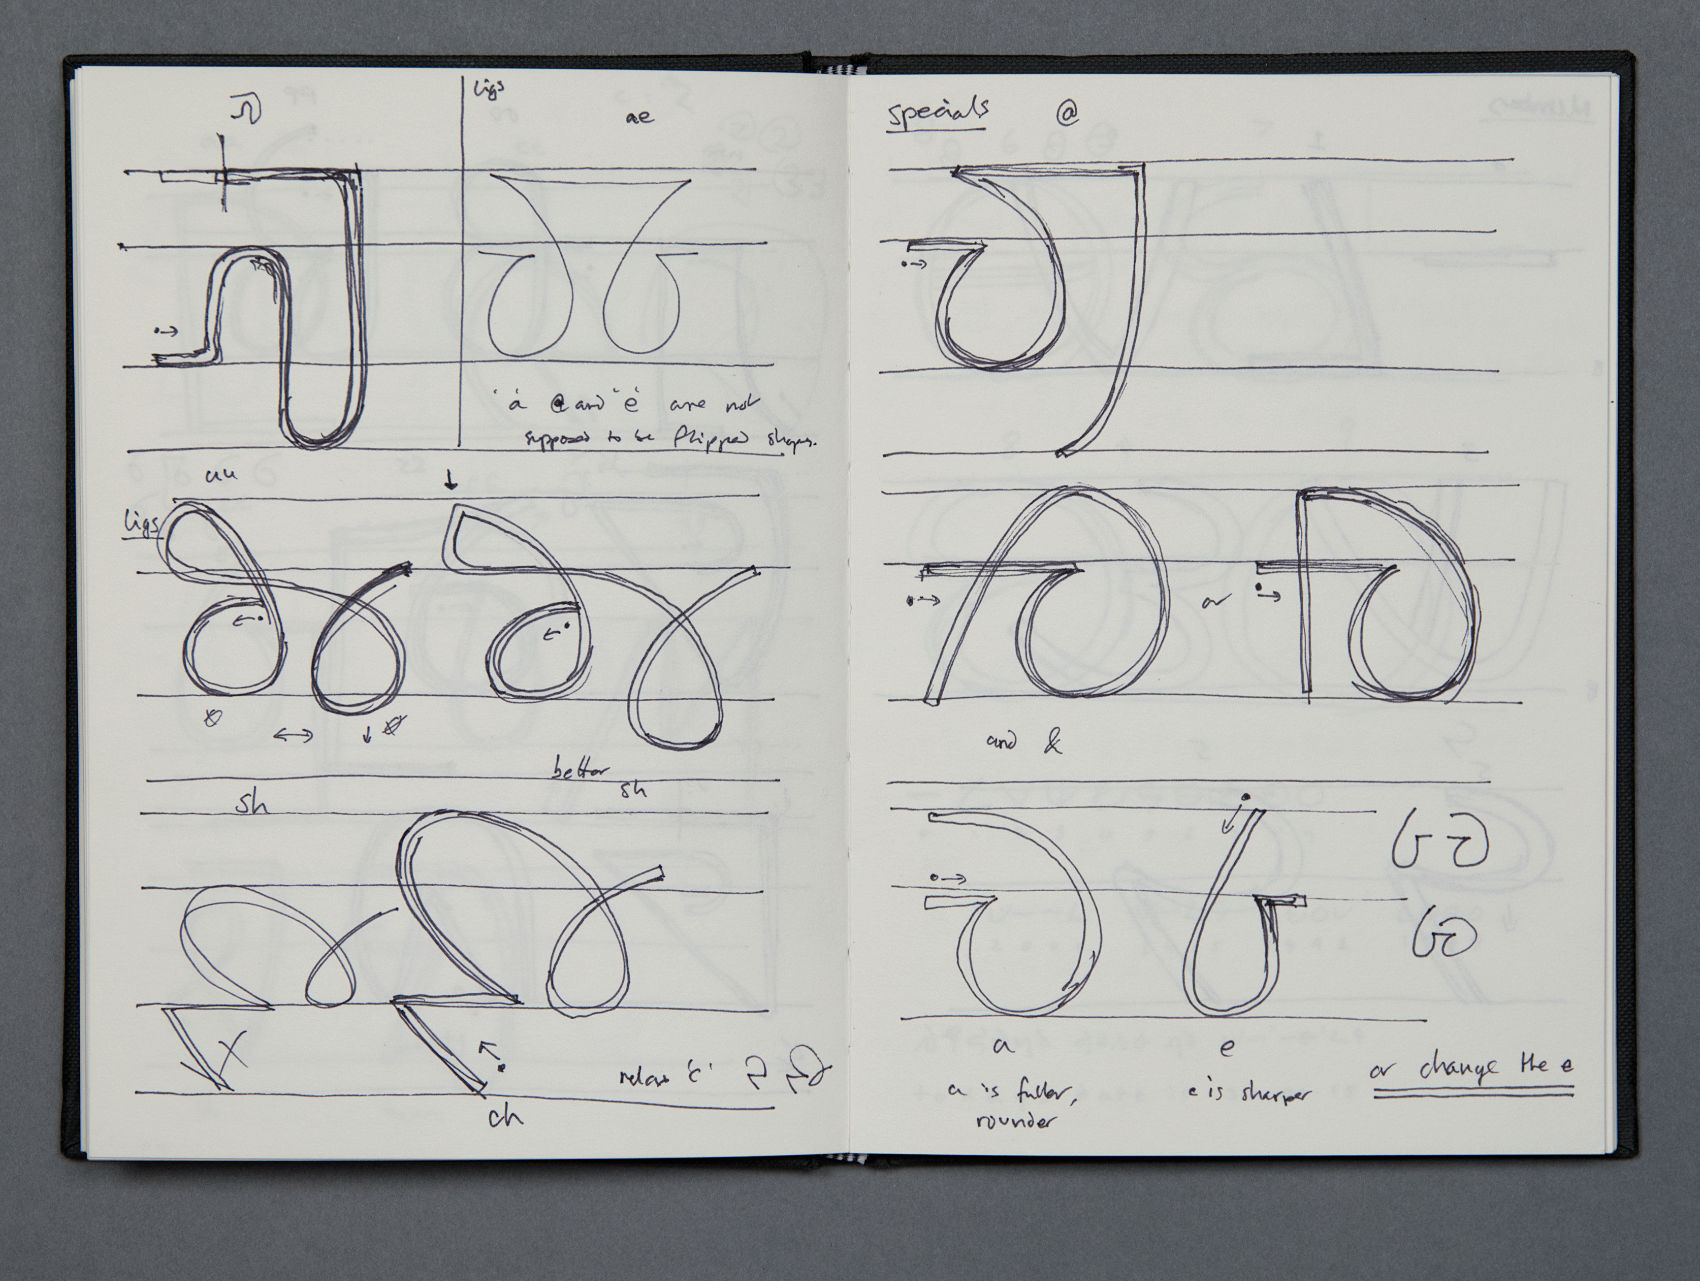 ligs
ae
'a' and 'e' are not
supposed to be flipped shapes.
au
ligs
sh
better
sh
relax 'c'
ch
specials @
or
and &
a
e
a is fuller,
rounder
e is sharper
or change the e